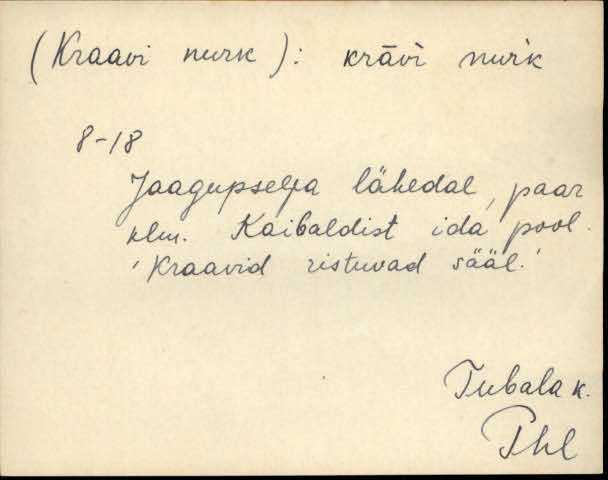 (Kraavi nurk): krāvi nuŕk
8-18
Jaagupselja lähedal, paar
klm. Kaibaldist ida pool.
'Kraavid ristuvad sääl.'
Tubala k.
Phl